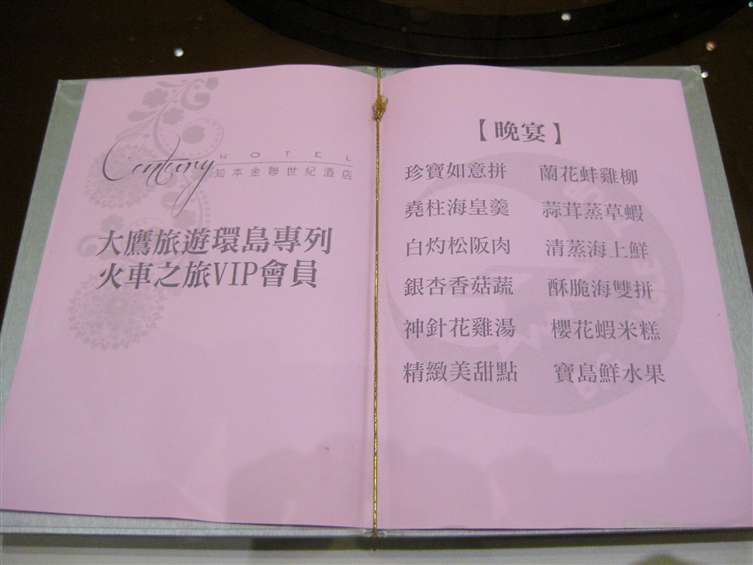 Century
HOTEL
知本金聯世紀酒店
大鷹旅遊環島專列
火車之旅VIP會員
【晚宴】
珍寶如意拼 蘭花蚌雞柳
堯柱海皇羹 蒜茸蒸草蝦
白灼松阪肉 清蒸海上鮮
銀杏香菇蔬 酥脆海雙拼
神針花雞湯 櫻花蝦米糕
精緻美甜點 寶島鮮水果